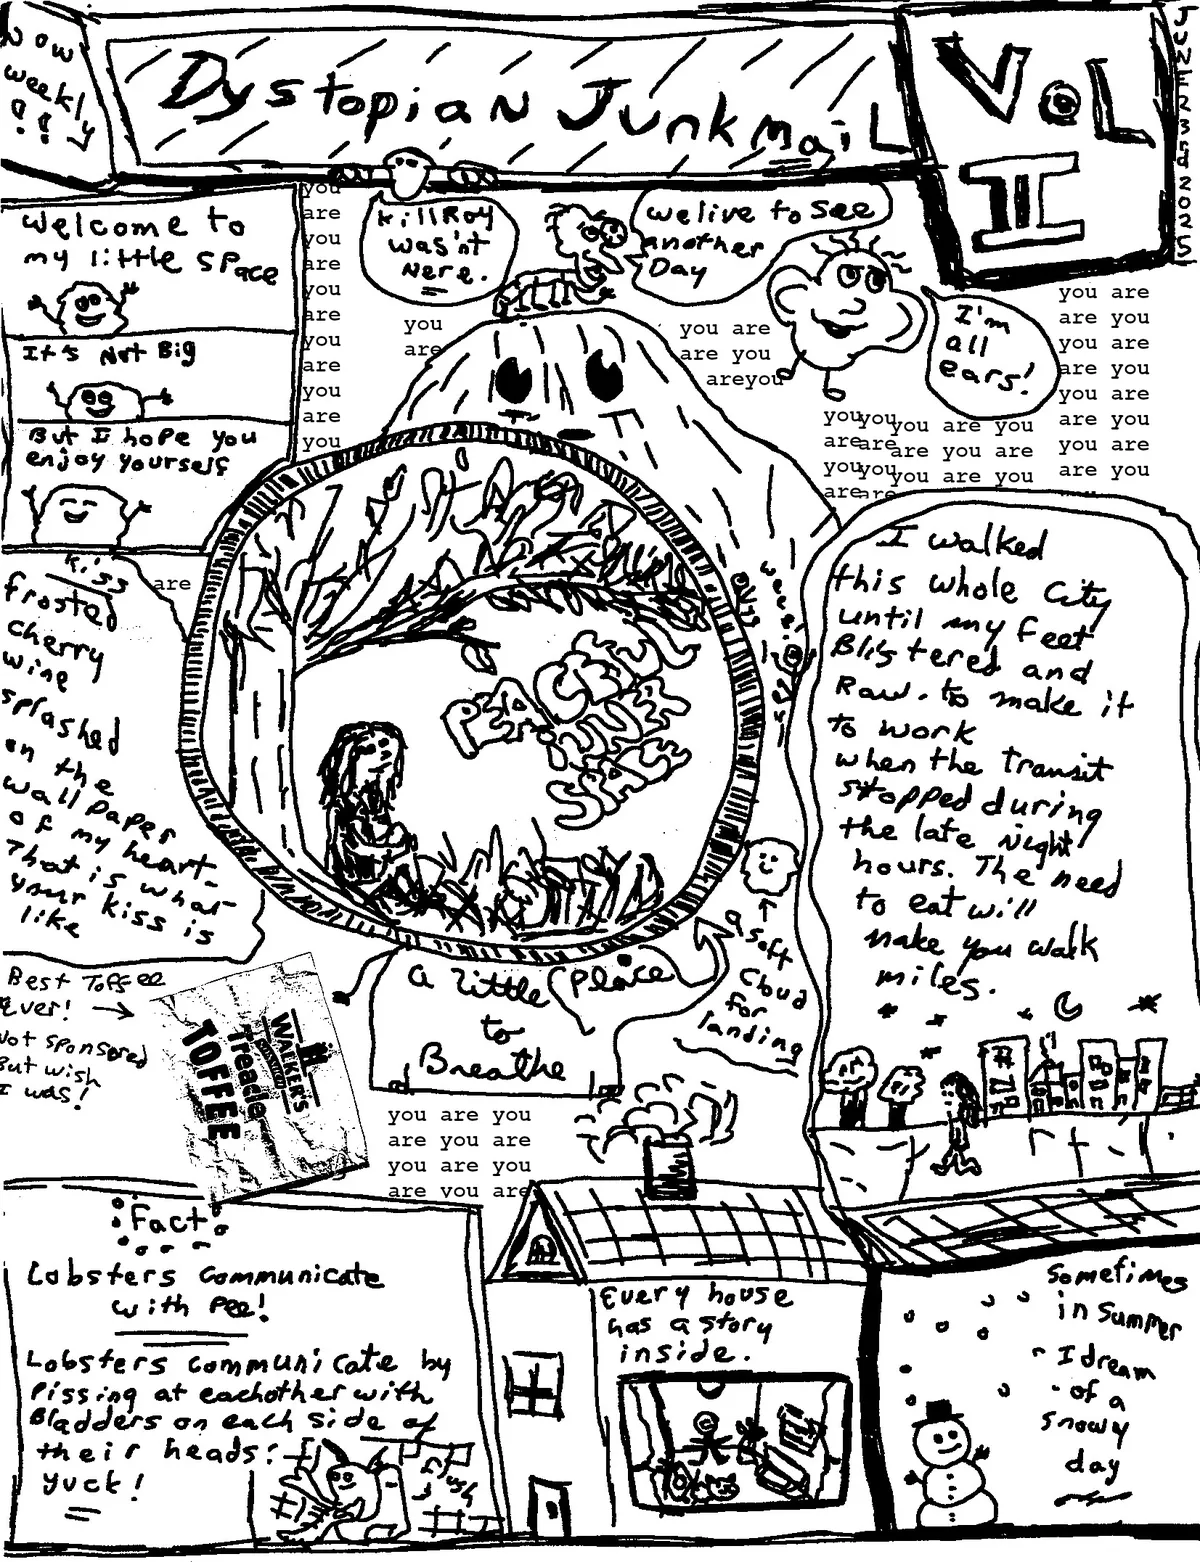 Now
weekly
!!
Dystopian Junkmail
VOL
II
JUNE 23 2025
Welcome to
my little space
It's Not Big
But I hope you
enjoy yourself
KillRoy
was'nt
Here.
we live to see
another
Day
I'm
all
ears!
you
are
you
are
you
are
you
are
you
are
you
you
are
you are
are you
areyou
you are
are you
you are
are you
you are
are you
you are
are you
you
are
you
are
you
are
you
are
you are you
are you are
you are you
are
kiss
frosted
cherry
wine
splashed
on the
wall paper
of my heart-
That is what
your kiss is
like
weee!
I walked
this whole City
until my feet
Blistered and
Raw. to make it
to work
when the Transit
stopped during
the late Night
hours. The need
to eat will
make you walk
miles.
Best Toffee
Ever! →
Not sponsored
But wish
I was!
WALKER'S
Treacle
TOFFEE
A little place
to
Breathe
a soft
Cloud
for
landing
you are you
are you are
you are you
are you are
Fact
Lobsters communicate
with pee!
Lobsters communicate by
pissing at eachother with
Bladders on each side of
their heads!
yuck!
Every house
has a story
inside.
Sometimes
in summer
I dream
of a
snowy
day